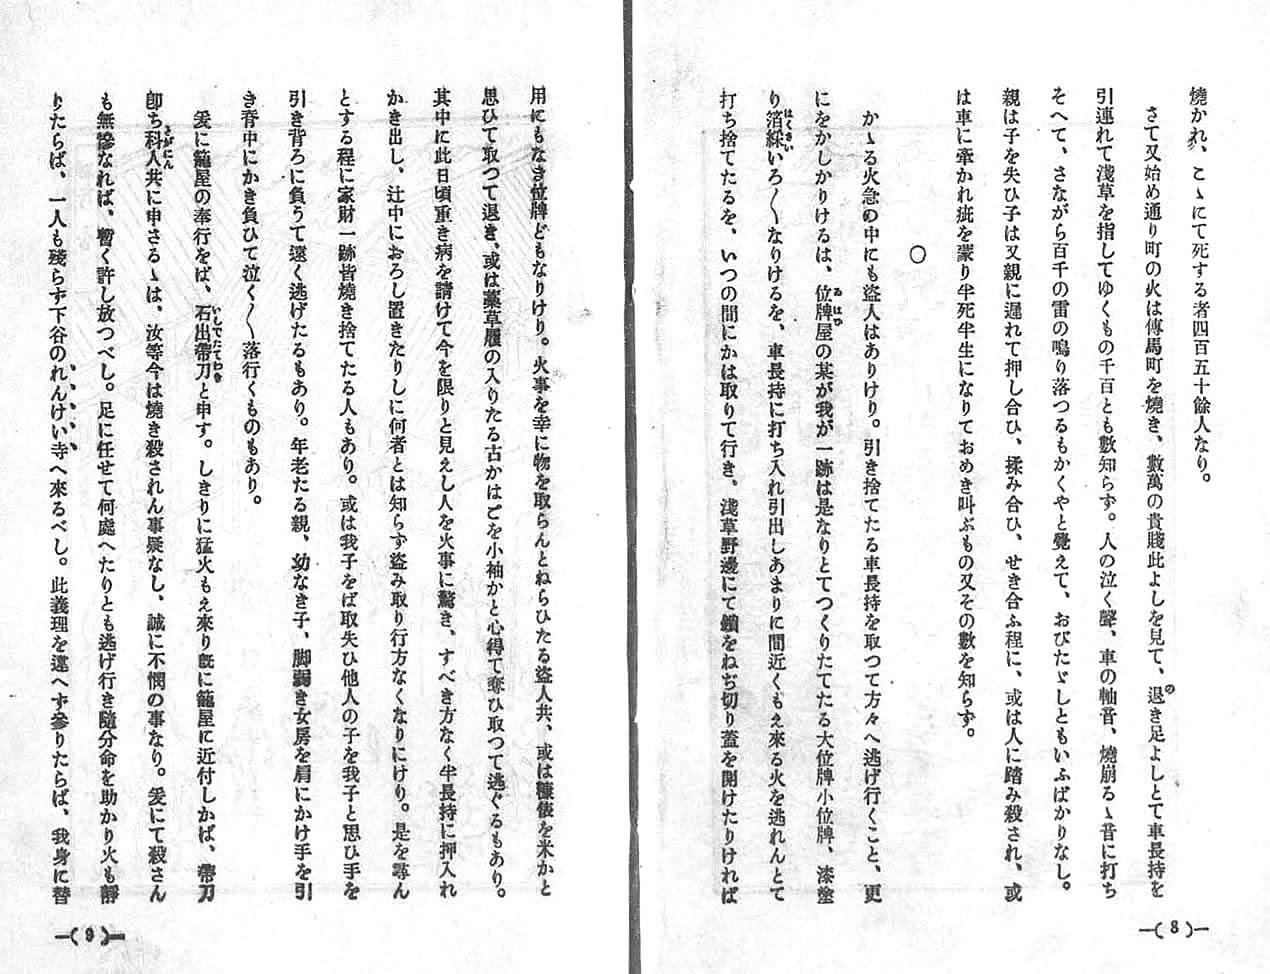 燒かれ、こゝにて死する者四百五十餘人なり。
さて又始め通り町の火は傳馬町を燒き、數萬の貴賤此よしを見て、退き足よしとて車長持を
引連れて淺草を指してゆくもの千百とも數知らず。人の泣く聲、車の軸音、燒崩るゝ音に打ち
そへて、さながら百千の雷の鳴り落つるもかくやと覺えて、おびたゞしともいふばかりなし。
親は子を失ひ子は又親に遲れて押し合ひ、揉み合ひ、せき合ふ程に、或は人に踏み殺され、或
は車に牽かれ疵を蒙り半死半生になりておめき叫ぶもの又その數を知らず。
〇
かゝる火急の中にも盜人はありけり。引き捨てたる車長持を取つて方々へ逃げ行くこと、更
にをかしかりけるは、位牌屋の某が我が一跡は是なりとてつくりたてたる大位牌小位牌、漆塗
り箔綵いろ〱なりけるを、車長持に打ち入れ引出しあまりに間近くもえ來る火を逃れんとて
打ち捨てたるを、いつの間にかは取りて行き、淺草野邊にて鎖をねぢ切り蓋を開けたりければ
—( 8 )—
用にもなき位牌どもなりけり。火事を幸に物を取らんとねらひたる盜人共、或は糠俵を米かと
思ひて取つて退き、或は藁草履の入りたる古かはごを小袖かと心得て奪ひ取つて逃ぐるもあり。
其中に此日頃重き病を請けて今を限りと見えし人を火事に驚き、すべき方なく半長持に押入れ
かき出し、辻中におろし置きたりしに何者とは知らず盜み取り行方なくなりにけり。是を尋ん
とする程に家財一跡皆燒き捨てたる人もあり。或は我子をば取失ひ他人の子を我子と思ひ手を
引き背ろに負うて遠く逃げたるもあり。年老たる親、幼なき子、脚弱き女房を肩にかけ手を引
き脊中にかき負ひて泣く〱落行くものもあり。
爰に籠屋の奉行をば、石出帶刀と申す。しきりに猛火もえ來り既に籠屋に近付しかば、帶刀
卽ち科人共に申さるゝは、汝等今は燒き殺されん事疑なし、誠に不憫の事なり。爰にて殺さん
も無慘なれば、暫く許し放つべし。足に任せて何處へたりとも逃げ行き隨分命を助かり火も靜
りたらば、一人も殘らず下谷のれんけい寺へ來るべし。此義理を違へず參りたらば、我身に替
—( 9 )—